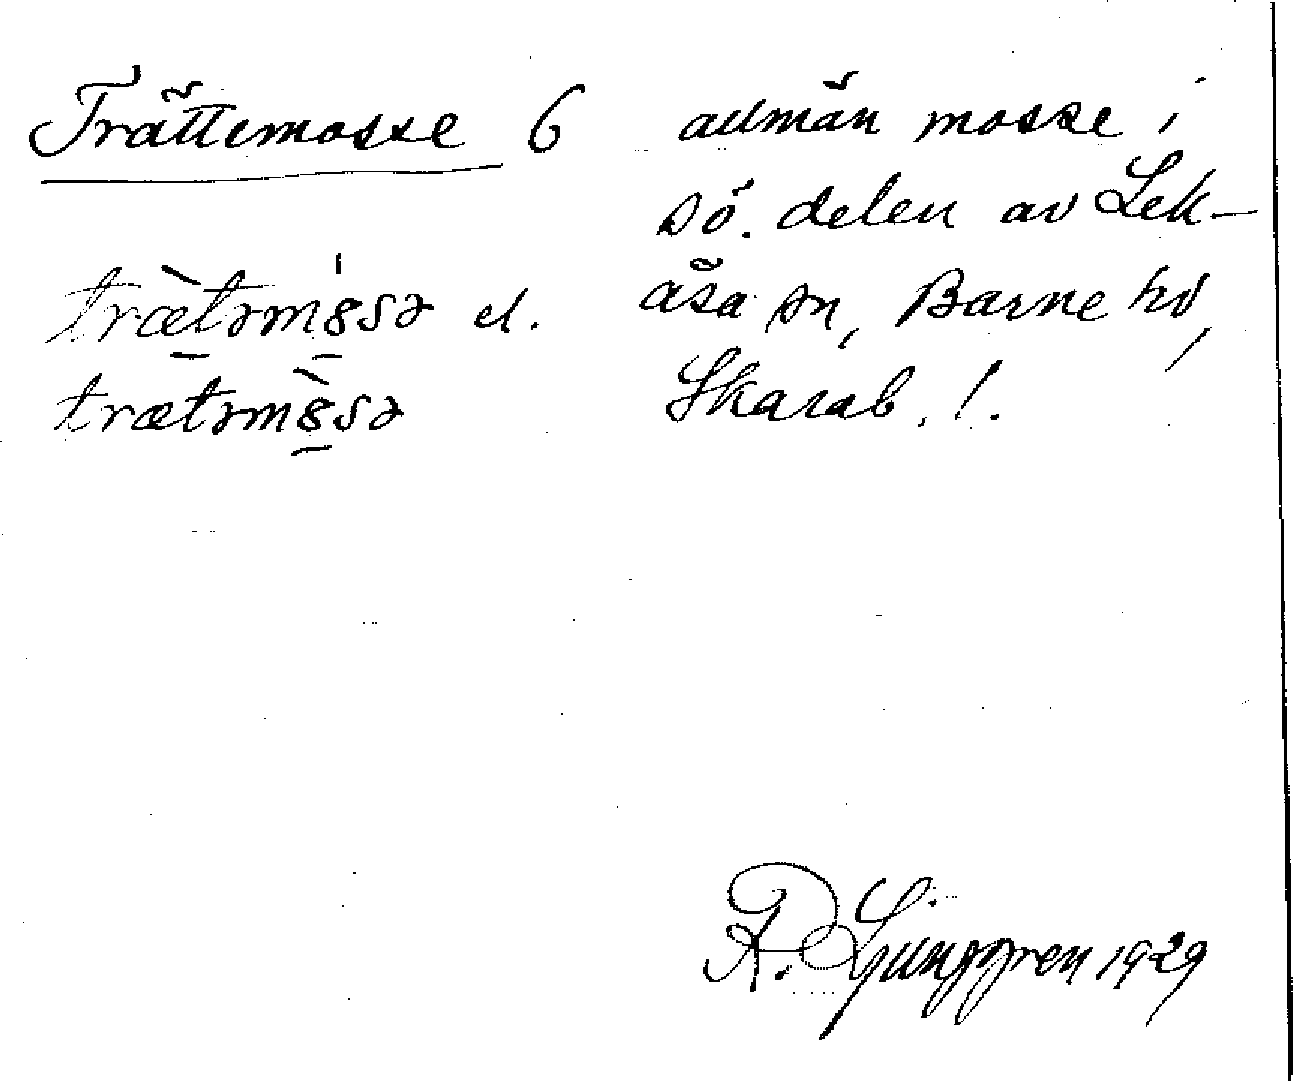 Trättemosse 6
trætəmȯsə el.
trætəmòsə
allmän mosse i
sö. delen av Lek-
åsa sn, Barne hd,
Skarab. !.
R. Ljunggren 1929